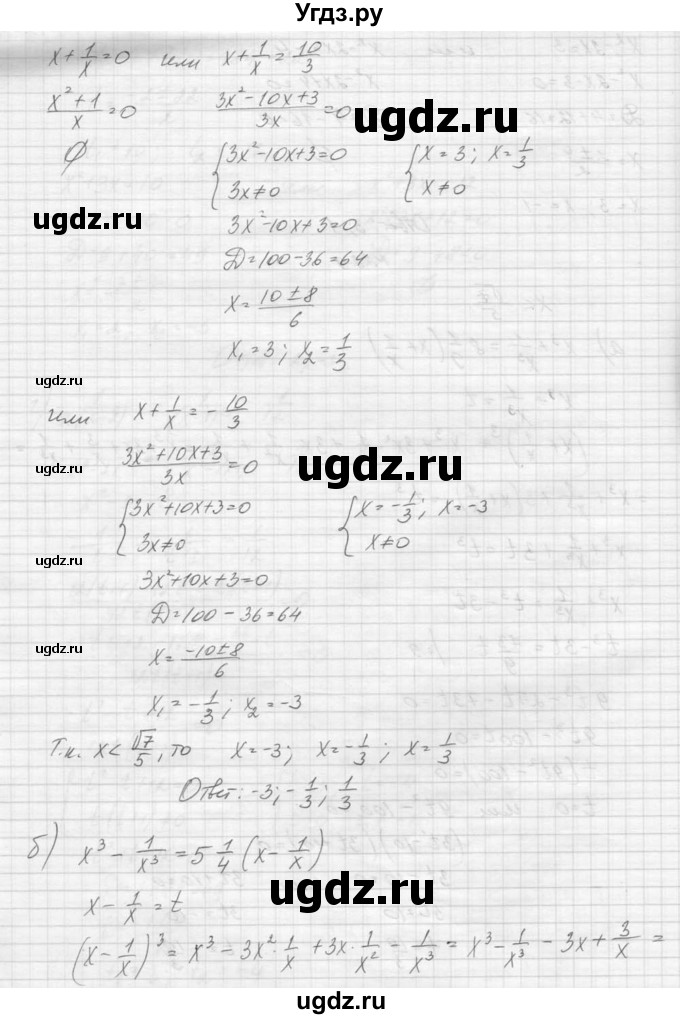 Угдз.ру
x + 1/x = 0 или x + 1/x = 10/3
(x² + 1)/x = 0 (3x² - 10x + 3)/3x = 0
ugdz.ru
∅ { 3x² - 10x + 3 = 0 { x = 3; x = 1/3
3x ≠ 0 x ≠ 0
ugdz.ru
3x² - 10x + 3 = 0
D = 100 - 36 = 64
x = (10 ± 8)/6
x₁ = 3; x₂ = 1/3
ugdz.ru
или x + 1/x = - 10/3
(3x² + 10x + 3)/3x = 0
ugdz.ru
ugdz.ru
{ 3x² + 10x + 3 = 0 { x = - 1/3; x = -3
3x ≠ 0 x ≠ 0
ugdz.ru
3x² + 10x + 3 = 0
D = 100 - 36 = 64
ugdz.ru
x = (-10 ± 8)/6
x₁ = - 1/3; x₂ = -3
Т.к. x < √7/5, то x = -3; x = - 1/3; x = 1/3
Ответ: -3; - 1/3; 1/3
б) x³ - 1/x³ = 5 1/4 (x - 1/x)
ugdz.ru
x - 1/x = t
ugdz.ru
(x - 1/x)³ = x³ - 3x² · 1/x + 3x · 1/x² - 1/x³ = x³ - 1/x³ - 3x + 3/x =
ugdz.ru